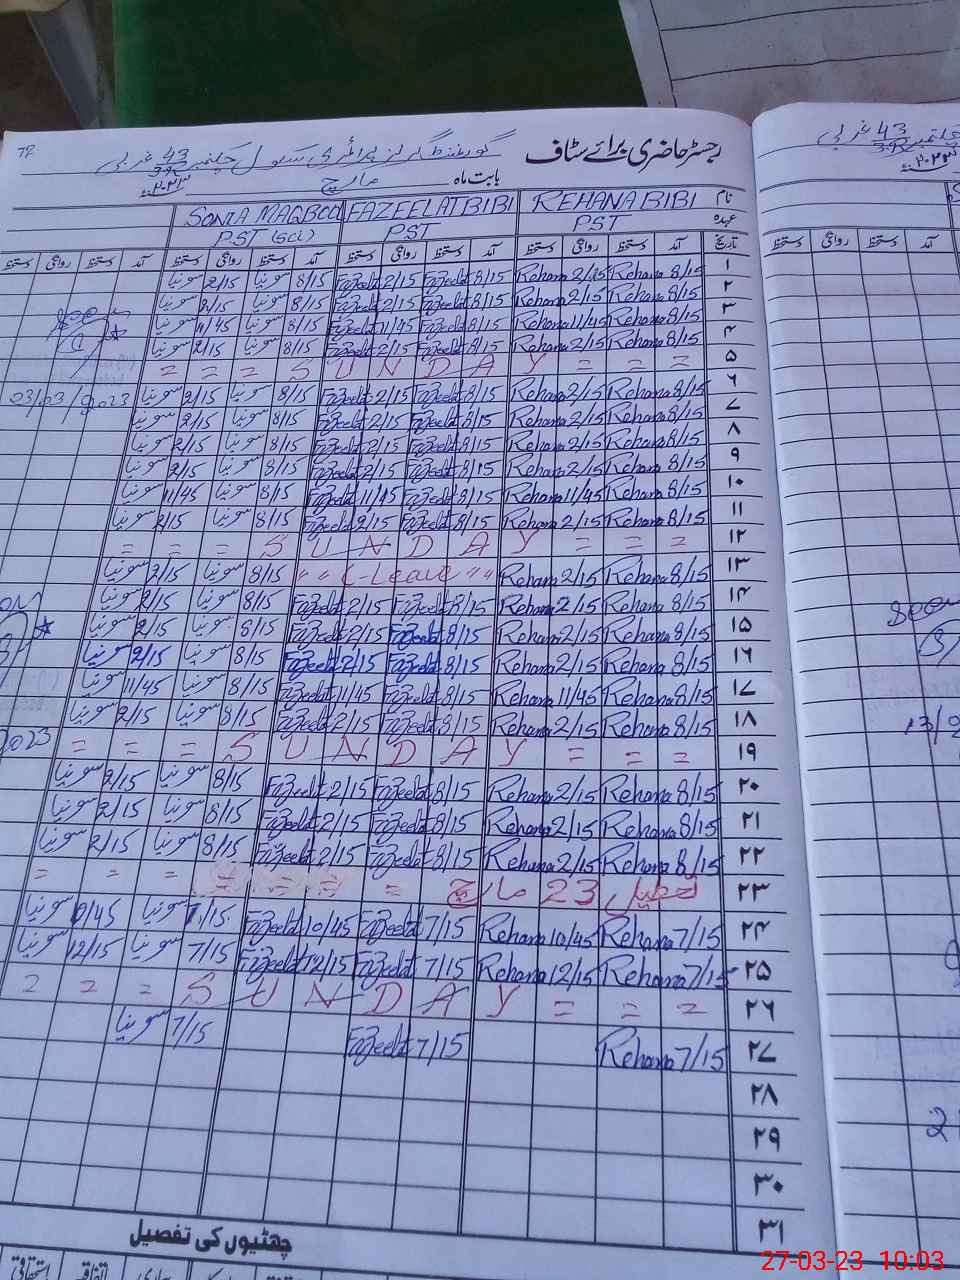 رجسٹر حاضری برائے سٹاف گورنمنٹ گرلز پرائمری سکول چکنمبر 43 غربی
بابت ماہ مارچ ۲۰۲۳
نام REHANA BIBI FAZEELAT BIBI SONIA MAQBOOL
عہدہ PST PST PST (SCI)
تاریخ آمد دستخط روانگی دستخط آمد دستخط روانگی دستخط آمد دستخط روانگی دستخط
۱ 8/15 Rehana 2/15 Rehana 8/15 Fazeelat 2/15 Fazeelat 8/15 سونیا 2/15 سونیا
۲ 8/15 Rehana 2/15 Rehana 8/15 Fazeelat 2/15 Fazeelat 8/15 سونیا 2/15 سونیا
۳ 8/15 Rehana 11/45 Rehana 8/15 Fazeelat 11/45 Fazeelat 8/15 سونیا 11/45 سونیا
۴ 8/15 Rehana 2/15 Rehana 8/15 Fazeelat 2/15 Fazeelat 8/15 سونیا 2/15 سونیا
۵ = = = S U N D A Y = = =
۶ 8/15 Rehana 2/15 Rehana 8/15 Fazeelat 2/15 Fazeelat 8/15 سونیا 2/15 سونیا
۷ 8/15 Rehana 2/15 Rehana 8/15 Fazeelat 2/15 Fazeelat 8/15 سونیا 2/15 سونیا
۸ 8/15 Rehana 2/15 Rehana 8/15 Fazeelat 2/15 Fazeelat 8/15 سونیا 2/15 سونیا
۹ 8/15 Rehana 2/15 Rehana 8/15 Fazeelat 2/15 Fazeelat 8/15 سونیا 2/15 سونیا
۱۰ 8/15 Rehana 11/45 Rehana 8/15 Fazeelat 11/45 Fazeelat 8/15 سونیا 11/45 سونیا
۱۱ 8/15 Rehana 2/15 Rehana 8/15 Fazeelat 2/15 Fazeelat 8/15 سونیا 2/15 سونیا
۱۲ = = = S U N D A Y = = =
۱۳ 8/15 Rehana 2/15 Rehana " " C-Leave " " 8/15 سونیا 2/15 سونیا
۱۴ 8/15 Rehana 2/15 Rehana 8/15 Fazeelat 2/15 Fazeelat 8/15 سونیا 2/15 سونیا
۱۵ 8/15 Rehana 2/15 Rehana 8/15 Fazeelat 2/15 Fazeelat 8/15 سونیا 2/15 سونیا
۱۶ 8/15 Rehana 2/15 Rehana 8/15 Fazeelat 2/15 Fazeelat 8/15 سونیا 2/15 سونیا
۱۷ 8/15 Rehana 11/45 Rehana 8/15 Fazeelat 11/45 Fazeelat 8/15 سونیا 11/45 سونیا
۱۸ 8/15 Rehana 2/15 Rehana 8/15 Fazeelat 2/15 Fazeelat 8/15 سونیا 2/15 سونیا
۱۹ = = = S U N D A Y = = =
۲۰ 8/15 Rehana 2/15 Rehana 8/15 Fazeelat 2/15 Fazeelat 8/15 سونیا 2/15 سونیا
۲۱ 8/15 Rehana 2/15 Rehana 8/15 Fazeelat 2/15 Fazeelat 8/15 سونیا 2/15 سونیا
۲۲ 8/15 Rehana 2/15 Rehana 8/15 Fazeelat 2/15 Fazeelat 8/15 سونیا 2/15 سونیا
۲۳ تعطیل 23 مارچ = = = = = =
۲۴ 7/15 Rehana 10/45 Rehana 7/15 Fazeelat 10/45 Fazeelat 7/15 سونیا 10/45 سونیا
۲۵ 7/15 Rehana 12/15 Rehana 7/15 Fazeelat 12/15 Fazeelat 7/15 سونیا 12/15 سونیا
۲۶ = = = S U N D A Y = = =
۲۷ 7/15 Rehana 7/15 Fazeelat 7/15 سونیا
۲۸
۲۹
۳۰
۳۱
چھٹیوں کی تفصیل
اتفاقیہ استحقاقی
Seen
03/03/2023
27-03-23 10:03